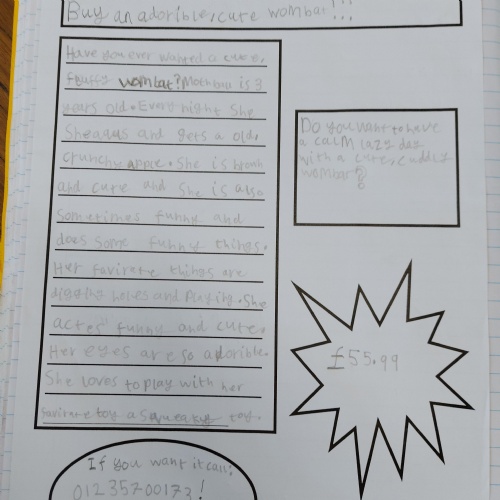 Buy an adorible, cute wombat!!!
Have you ever wanted a cute,
fluffy wombat? Mothball is 3
years old. Every night she
and gets a old,
crunchy apple. She is brown
and cute and she is also
sometimes funny and
does some funny things.
Her favirate things are
digging holes and playing. She
actes funny and cute.
Her eyes are so adorible.
She loves to play with her
favirate toy a squeaky toy.
Do you want to have
a calm lazy day
with a cute, cuddly
wombat?
£55.99
If you want it call:
01235700173!